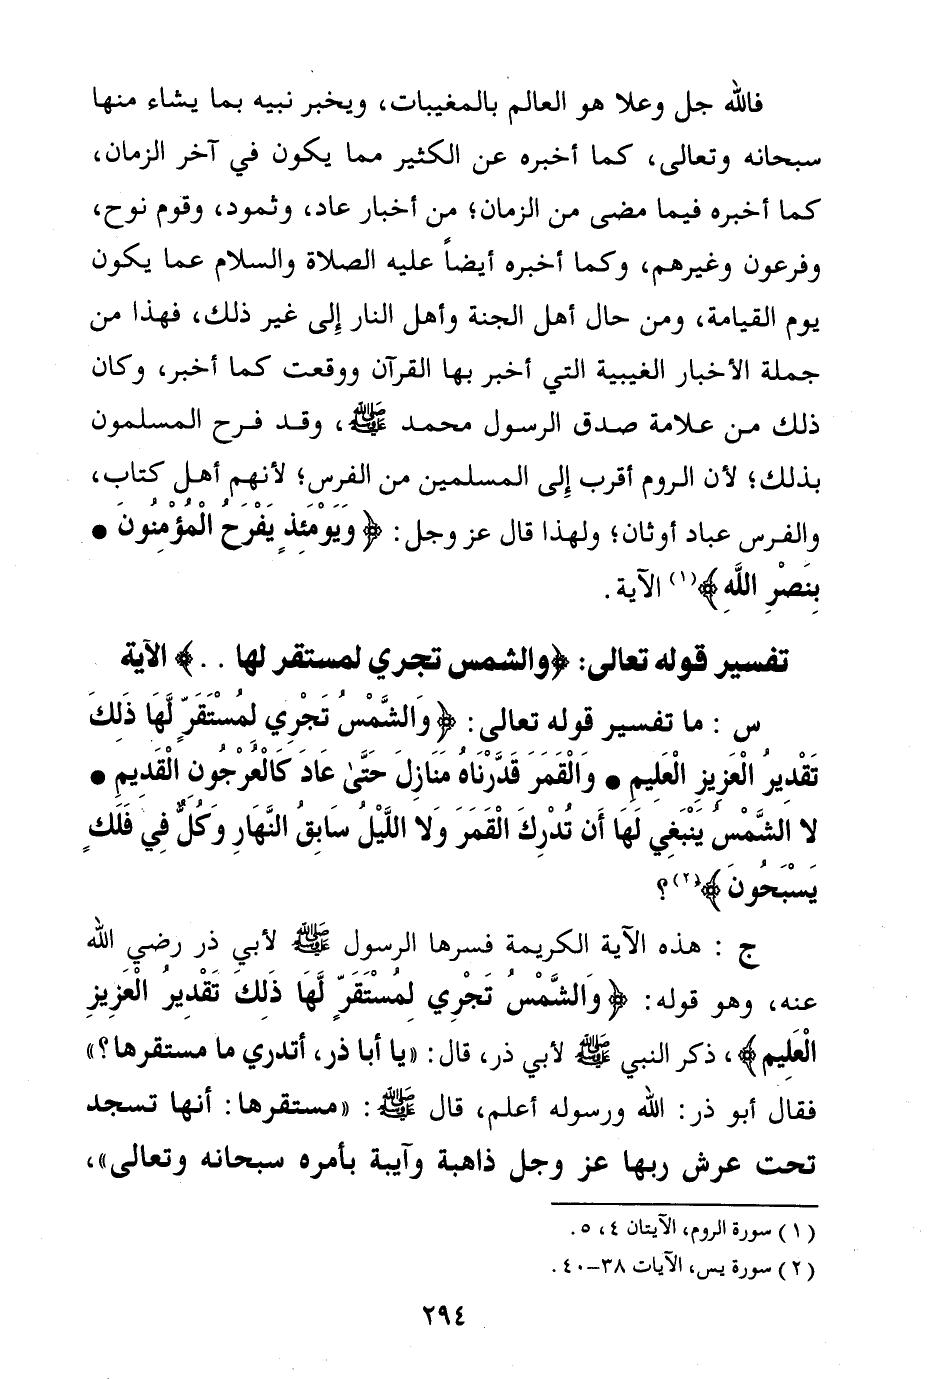 فالله جل وعلا هو العالم بالمغيبات، ويخبر نبيه بما يشاء منها
سبحانه وتعالى، كما أخبره عن الكثير مما يكون في آخر الزمان،
كما أخبره فيما مضى من الزمان؛ من أخبار عاد، وثمود، وقوم نوح،
وفرعون وغيرهم، وكما أخبره أيضاً عليه الصلاة والسلام عما يكون
يوم القيامة، ومن حال أهل الجنة وأهل النار إلى غير ذلك، فهذا من
جملة الأخبار الغيبية التي أخبر بها القرآن ووقعت كما أخبر، وكان
ذلك من علامة صدق الرسول محمد ﷺ، وقد فرح المسلمون
بذلك؛ لأن الروم أقرب إلى المسلمين من الفرس؛ لأنهم أهل كتاب،
والفرس عباد أوثان؛ ولهذا قال عز وجل: ﴿وَيَوْمَئِذٍ يَفْرَحُ الْمُؤْمِنُونَ •
بِنَصْرِ اللَّهِ﴾(١) الآية.
تفسير قوله تعالى: ﴿والشمس تجري لمستقر لها . .﴾ الآية
س : ما تفسير قوله تعالى: ﴿وَالشَّمْسُ تَجْرِي لِمُسْتَقَرٍّ لَّهَا ذَلِكَ
تَقْدِيرُ الْعَزِيزِ الْعَلِيمِ • وَالْقَمَرَ قَدَّرْنَاهُ مَنَازِلَ حَتَّىٰ عَادَ كَالْعُرْجُونِ الْقَدِيمِ •
لا الشَّمْسُ يَنْبَغِي لَهَا أَن تُدْرِكَ الْقَمَرَ وَلا اللَّيْلُ سَابِقُ النَّهَارِ وَكُلٌّ فِي فَلَكٍ
يَسْبَحُونَ﴾(٢)؟
ج : هذه الآية الكريمة فسرها الرسول ﷺ لأبي ذر رضي الله
عنه، وهو قوله: ﴿وَالشَّمْسُ تَجْرِي لِمُسْتَقَرٍّ لَّهَا ذَلِكَ تَقْدِيرُ الْعَزِيزِ
الْعَلِيمِ﴾، ذكر النبي ﷺ لأبي ذر، قال: «يا أبا ذر، أتدري ما مستقرها؟»
فقال أبو ذر: الله ورسوله أعلم، قال ﷺ: «مستقرها: أنها تسجد
تحت عرش ربها عز وجل ذاهبة وآيبة بأمره سبحانه وتعالى»،
(١) سورة الروم، الآيتان ٤، ٥.
(٢) سورة يس، الآيات ٣٨-٤٠.
٢٩٤